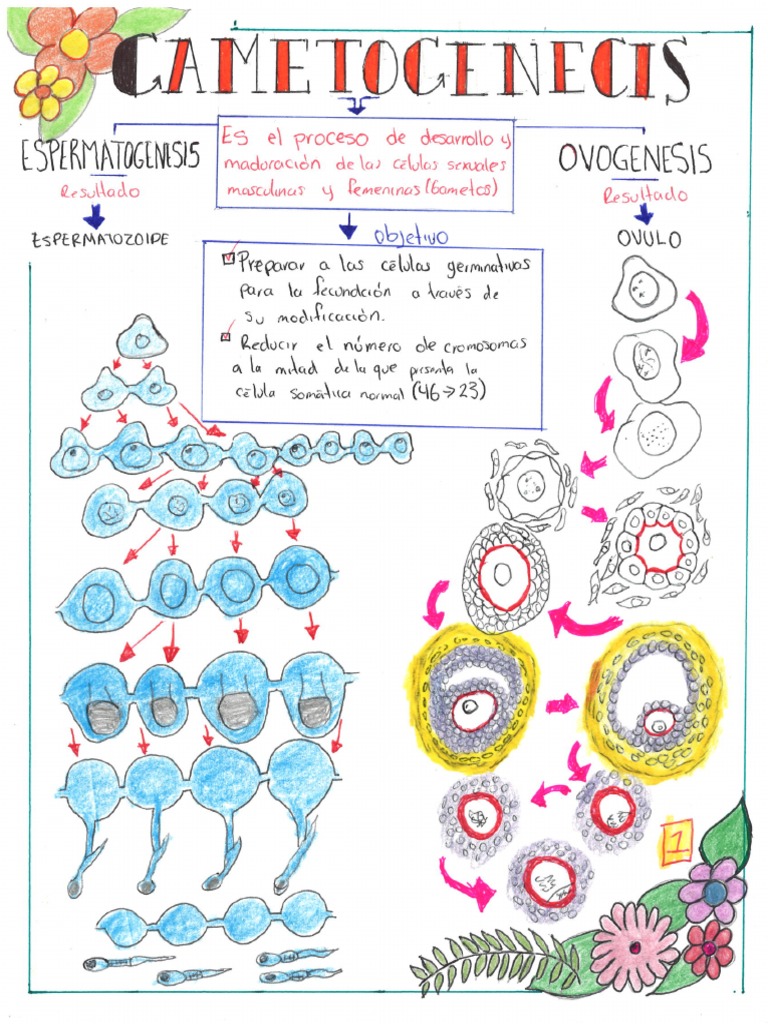 GAMETOGENECIS
ESPERMATOGENESIS
Resultado
ESPERMATOZOIDE
Es el proceso de desarrollo y
maduración de las células sexuales
masculinas y femeninas (Gametos)
OVOGENESIS
Resultado
OVULO
Objetivo
Preparar a las células germinativas
para la fecundción a través de
su modificación.
Reducir el número de cromosomas
a la mitad de la que presenta la
célula somática normal (46→23)
1